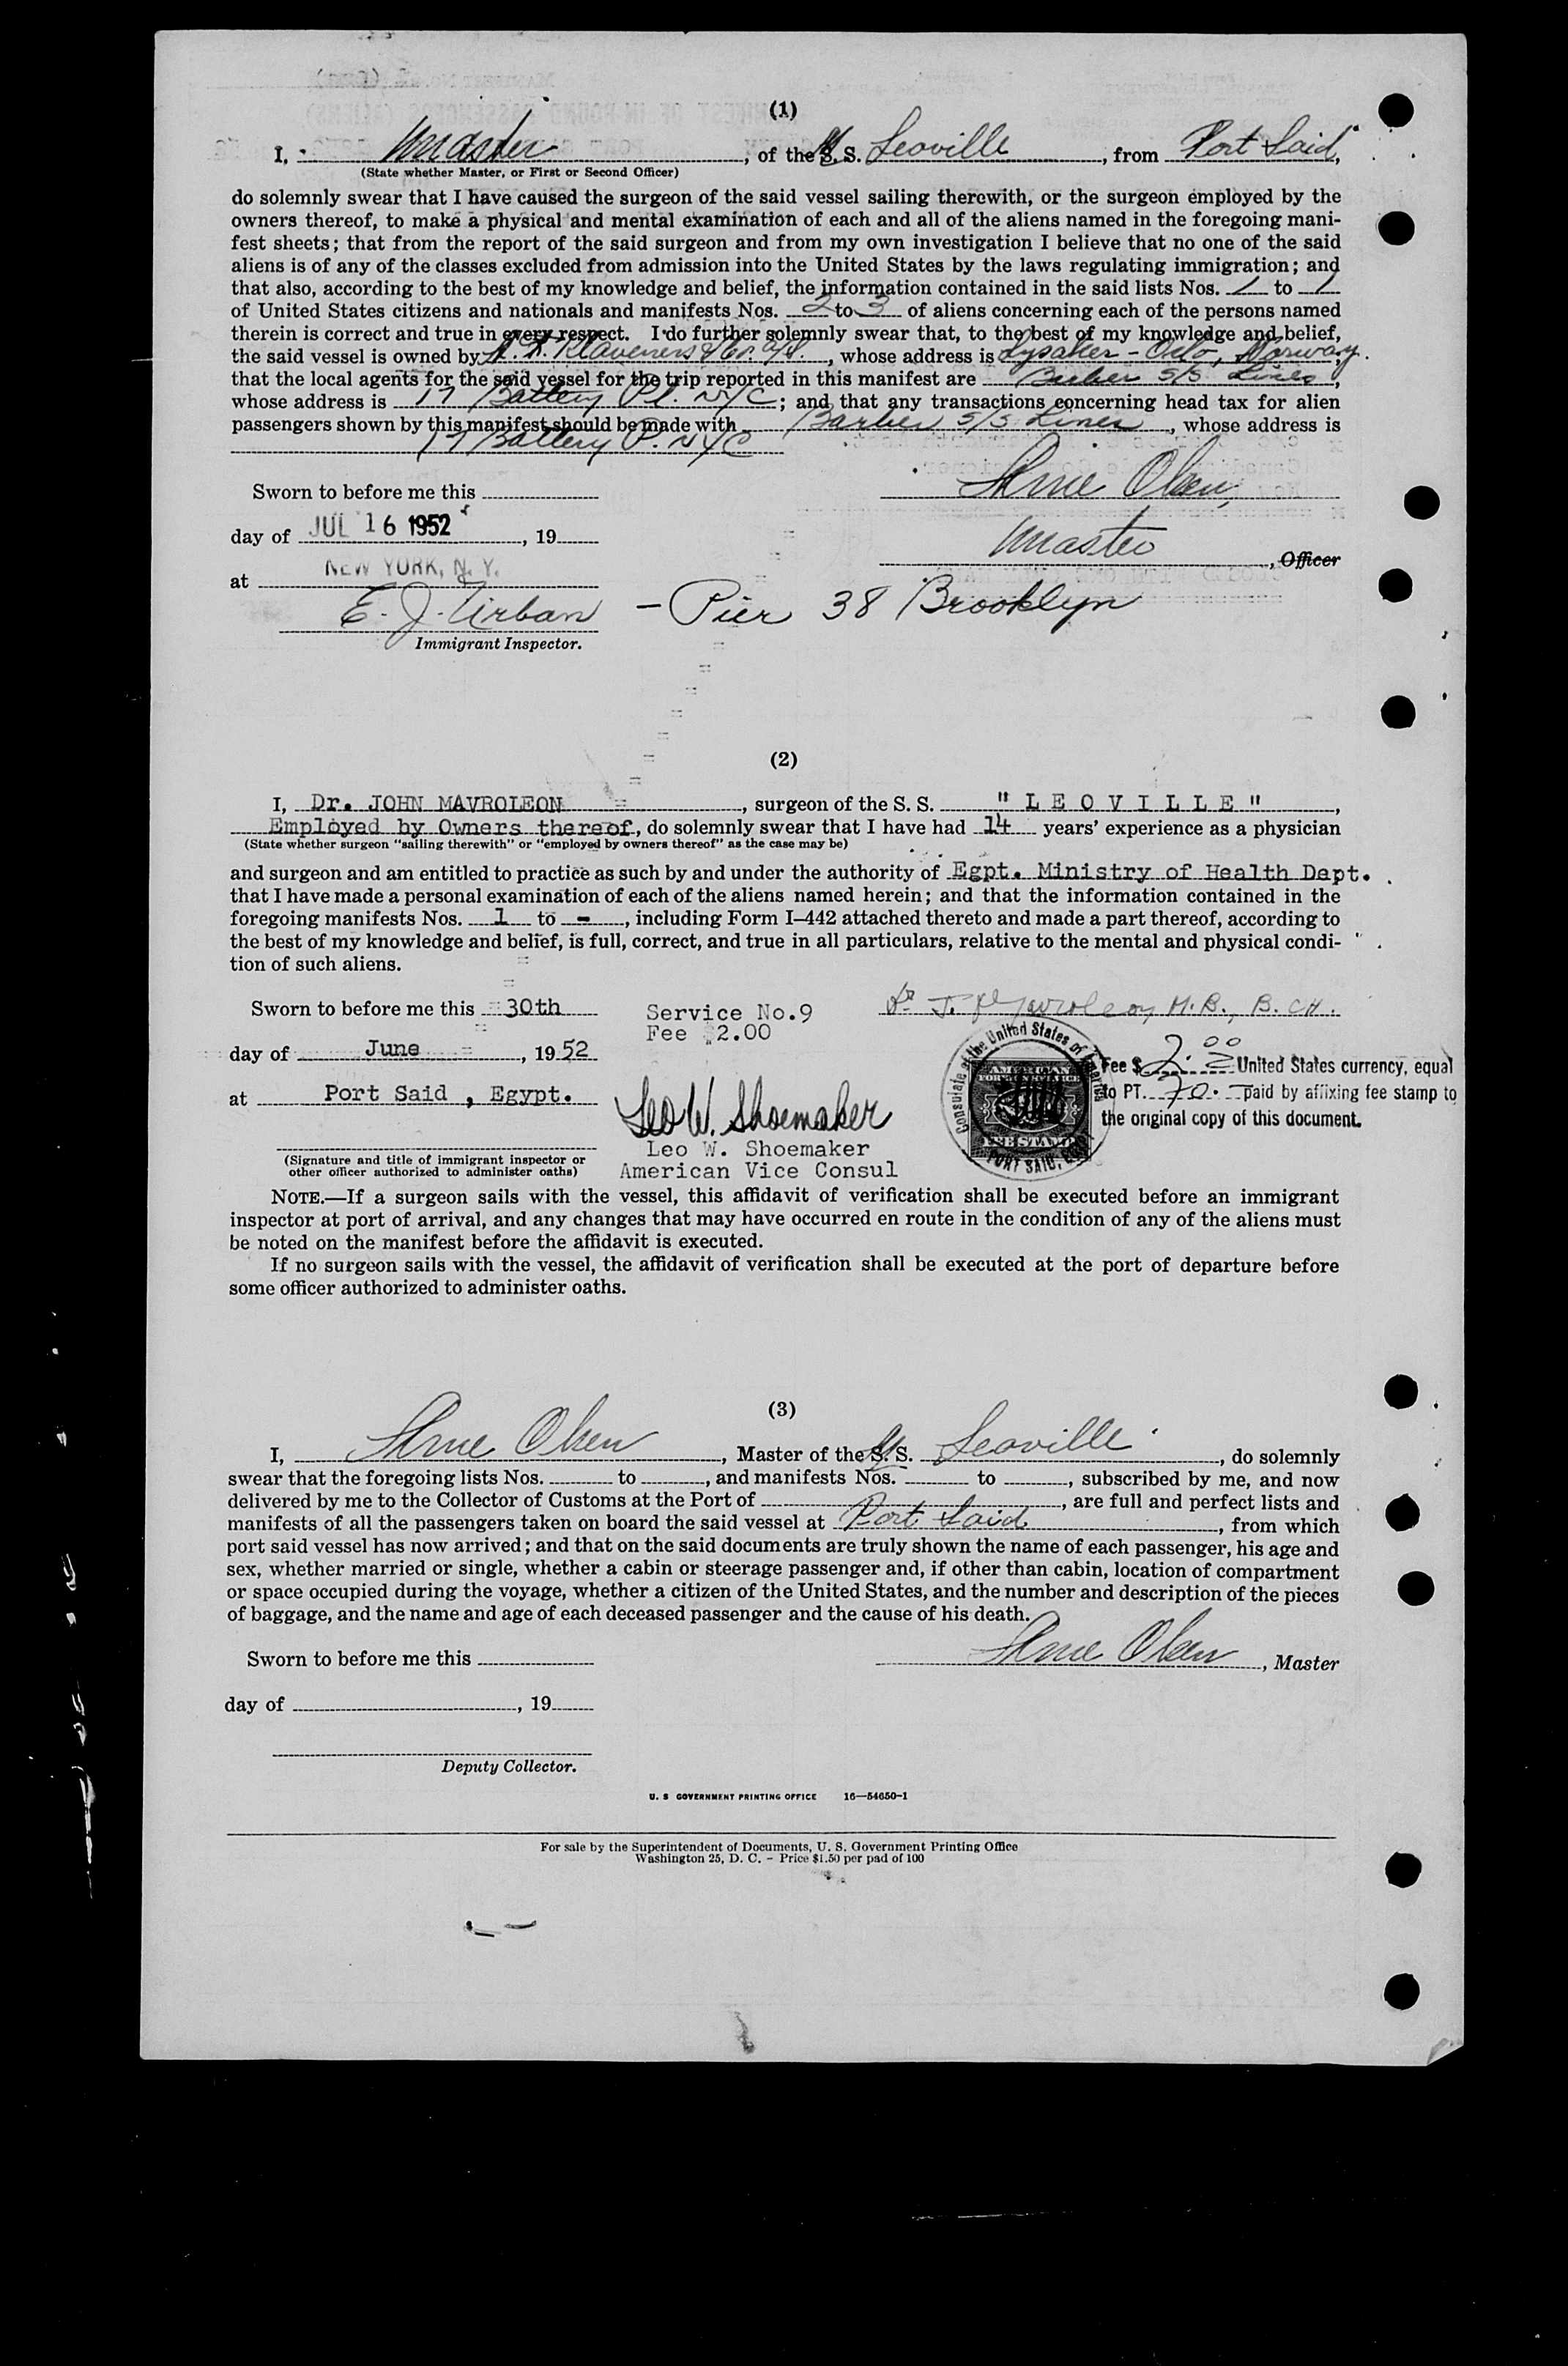 (1)
I, Master, of the M S. S. Leoville, from Port Said,
(State whether Master, or First or Second Officer)
do solemnly swear that I have caused the surgeon of the said vessel sailing therewith, or the surgeon employed by the
owners thereof, to make a physical and mental examination of each and all of the aliens named in the foregoing mani-
fest sheets; that from the report of the said surgeon and from my own investigation I believe that no one of the said
aliens is of any of the classes excluded from admission into the United States by the laws regulating immigration; and
that also, according to the best of my knowledge and belief, the information contained in the said lists Nos. 1 to 1
of United States citizens and nationals and manifests Nos. 2 to 3 of aliens concerning each of the persons named
therein is correct and true in every respect. I do further solemnly swear that, to the best of my knowledge and belief,
the said vessel is owned by A. F. Klaveness & Co. A/S., whose address is Lysaker - Oslo, Norway,
that the local agents for the said vessel for the trip reported in this manifest are Barber S/S Lines,
whose address is 17 Battery Pl. NYC; and that any transactions concerning head tax for alien
passengers shown by this manifest should be made with Barber S/S Lines, whose address is
17 Battery P. NYC
Sworn to before me this
Arne Olsen,
day of JUL 16 1952, 19
Master, Officer
at NEW YORK, N. Y.
E. J. Urban - Pier 38 Brooklyn
Immigrant Inspector.
(2)
I, Dr. JOHN MAVROLEON, surgeon of the S. S. "LEOVILLE",
Employed by Owners thereof, do solemnly swear that I have had 14 years' experience as a physician
(State whether surgeon "sailing therewith" or "employed by owners thereof" as the case may be)
and surgeon and am entitled to practice as such by and under the authority of Egpt. Ministry of Health Dept.
that I have made a personal examination of each of the aliens named herein; and that the information contained in the
foregoing manifests Nos. 1 to -, including Form I-442 attached thereto and made a part thereof, according to
the best of my knowledge and belief, is full, correct, and true in all particulars, relative to the mental and physical condi-
tion of such aliens.
Sworn to before me this 30th
Service No.9
Dr J. Mavroleon, M.B., B.CH.
Fee 2.00
day of June, 1952
Fee $ 2.00 United States currency, equal
at Port Said , Egypt.
to PT. 70.- paid by affixing fee stamp to
the original copy of this document.
Consulate of the United States of America
PORT SAID, EGYPT
AMERICAN
FOREIGN SERVICE
FEE STAMP
Leo W. Shoemaker
Leo W. Shoemaker
American Vice Consul
(Signature and title of immigrant inspector or
other officer authorized to administer oaths)
NOTE.—If a surgeon sails with the vessel, this affidavit of verification shall be executed before an immigrant
inspector at port of arrival, and any changes that may have occurred en route in the condition of any of the aliens must
be noted on the manifest before the affidavit is executed.
If no surgeon sails with the vessel, the affidavit of verification shall be executed at the port of departure before
some officer authorized to administer oaths.
(3)
I, Arne Olsen, Master of the M S. S. Leoville, do solemnly
swear that the foregoing lists Nos. to , and manifests Nos. to , subscribed by me, and now
delivered by me to the Collector of Customs at the Port of , are full and perfect lists and
manifests of all the passengers taken on board the said vessel at Port Said, from which
port said vessel has now arrived; and that on the said documents are truly shown the name of each passenger, his age and
sex, whether married or single, whether a cabin or steerage passenger and, if other than cabin, location of compartment
or space occupied during the voyage, whether a citizen of the United States, and the number and description of the pieces
of baggage, and the name and age of each deceased passenger and the cause of his death.
Sworn to before me this
Arne Olsen, Master
day of , 19
Deputy Collector.
U. S GOVERNMENT PRINTING OFFICE 16—54650-1
For sale by the Superintendent of Documents, U. S. Government Printing Office
Washington 25, D. C. - Price $1.50 per pad of 100